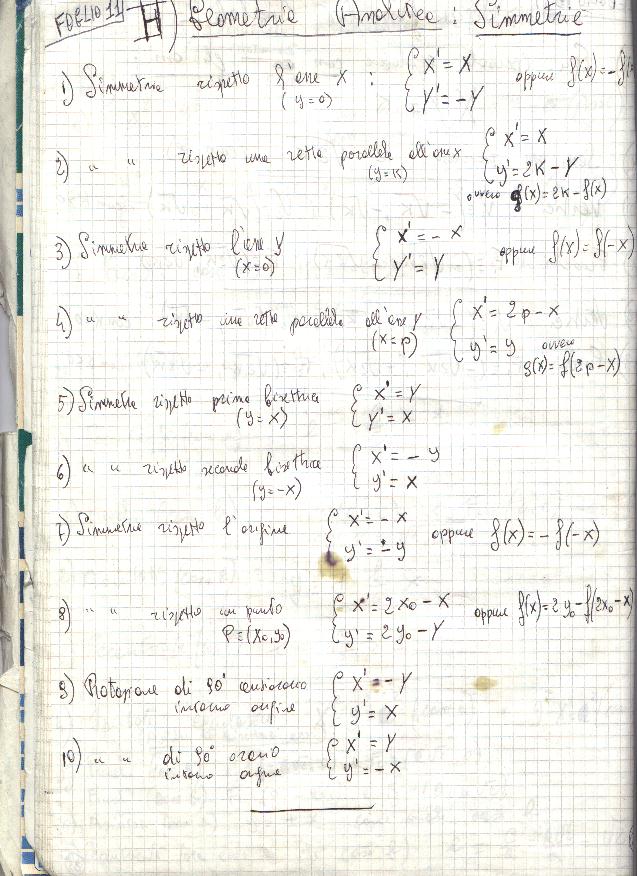 FOGLIO 11 H) Geometria Analitica : Simmetrie
1) Simmetria rispetto l'asse X : { X' = X oppure f(x) = -f(
(y=0) Y' = -Y
2) " " rispetto una retta parallela all'asse x { X' = X
(y=K) y' = 2K - Y
ovvero g(x) = 2K - f(x)
3) Simmetria rispetto l'asse Y { X' = - X oppure f(x) = f(-x)
(x=0) Y' = Y
4) " " rispetto una retta parallela all'asse Y { X' = 2p - x
(x=p) y' = y ovvero
g(x) = f(2p-x)
5) Simmetria rispetto prima bisettrice { X' = Y
(y=x) Y' = X
6) " " rispetto seconda bisettrice { X' = - y
(y=-x) y' = x
7) Simmetria rispetto l'origine { X' = - x oppure f(x) = - f(-x)
y' = - y
8) " " rispetto un punto { X' = 2x₀ - X oppure f(x) = 2y₀ - f(2x₀ - x)
P≡(x₀,y₀) y' = 2y₀ - Y
9) Rotazione di 90° antiorario { X' = - Y
intorno origine y' = X
10) " " di 90° orario { X' = Y
intorno origine y' = - X